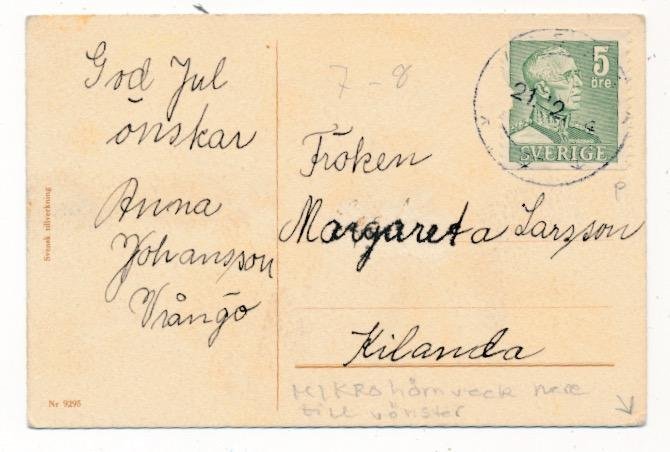 God Jul
önskar
Anna
Johansson
Vrångö
7-8
5
öre
SVERIGE
21.12
Fröken
Margareta Larsson
Kilanda
MIKRO hörnveck nere
till vänster
P
Svensk tillverkning
Nr 9295